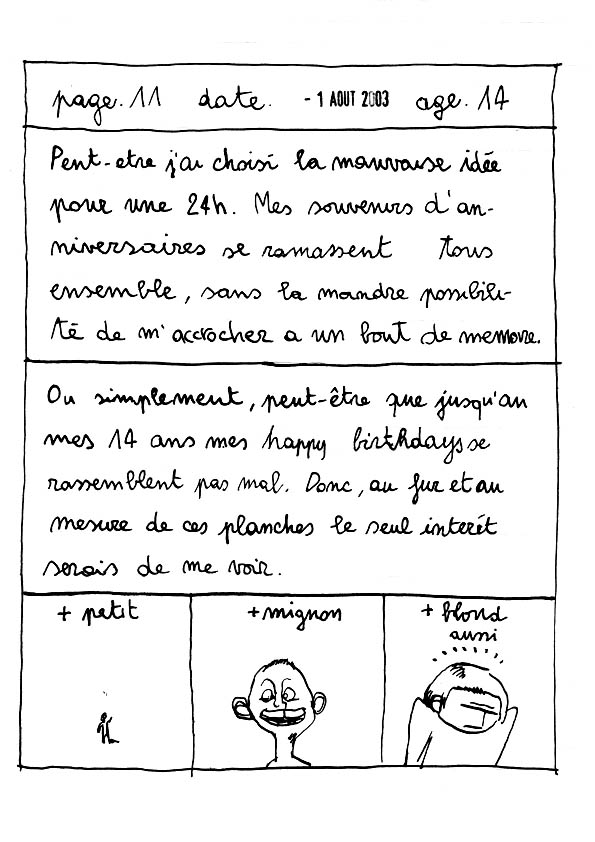 page. 11 date. - 1 AOUT 2003 age. 14
Peut-etre j'ai choisi la mauvaise idée
pour une 24h. Mes souvenirs d'an-
niversaires se ramassent tous
ensemble, sans la moindre possibili-
té de m'accrocher a un bout de memoire.
Ou simplement, peut-être que jusqu'au
mes 14 ans mes happy birthdays se
rassemblent pas mal. Donc, au fur et au
mesure de ces planches le seul interét
serais de me voir.
+ petit
+ mignon
+ blond
aussi